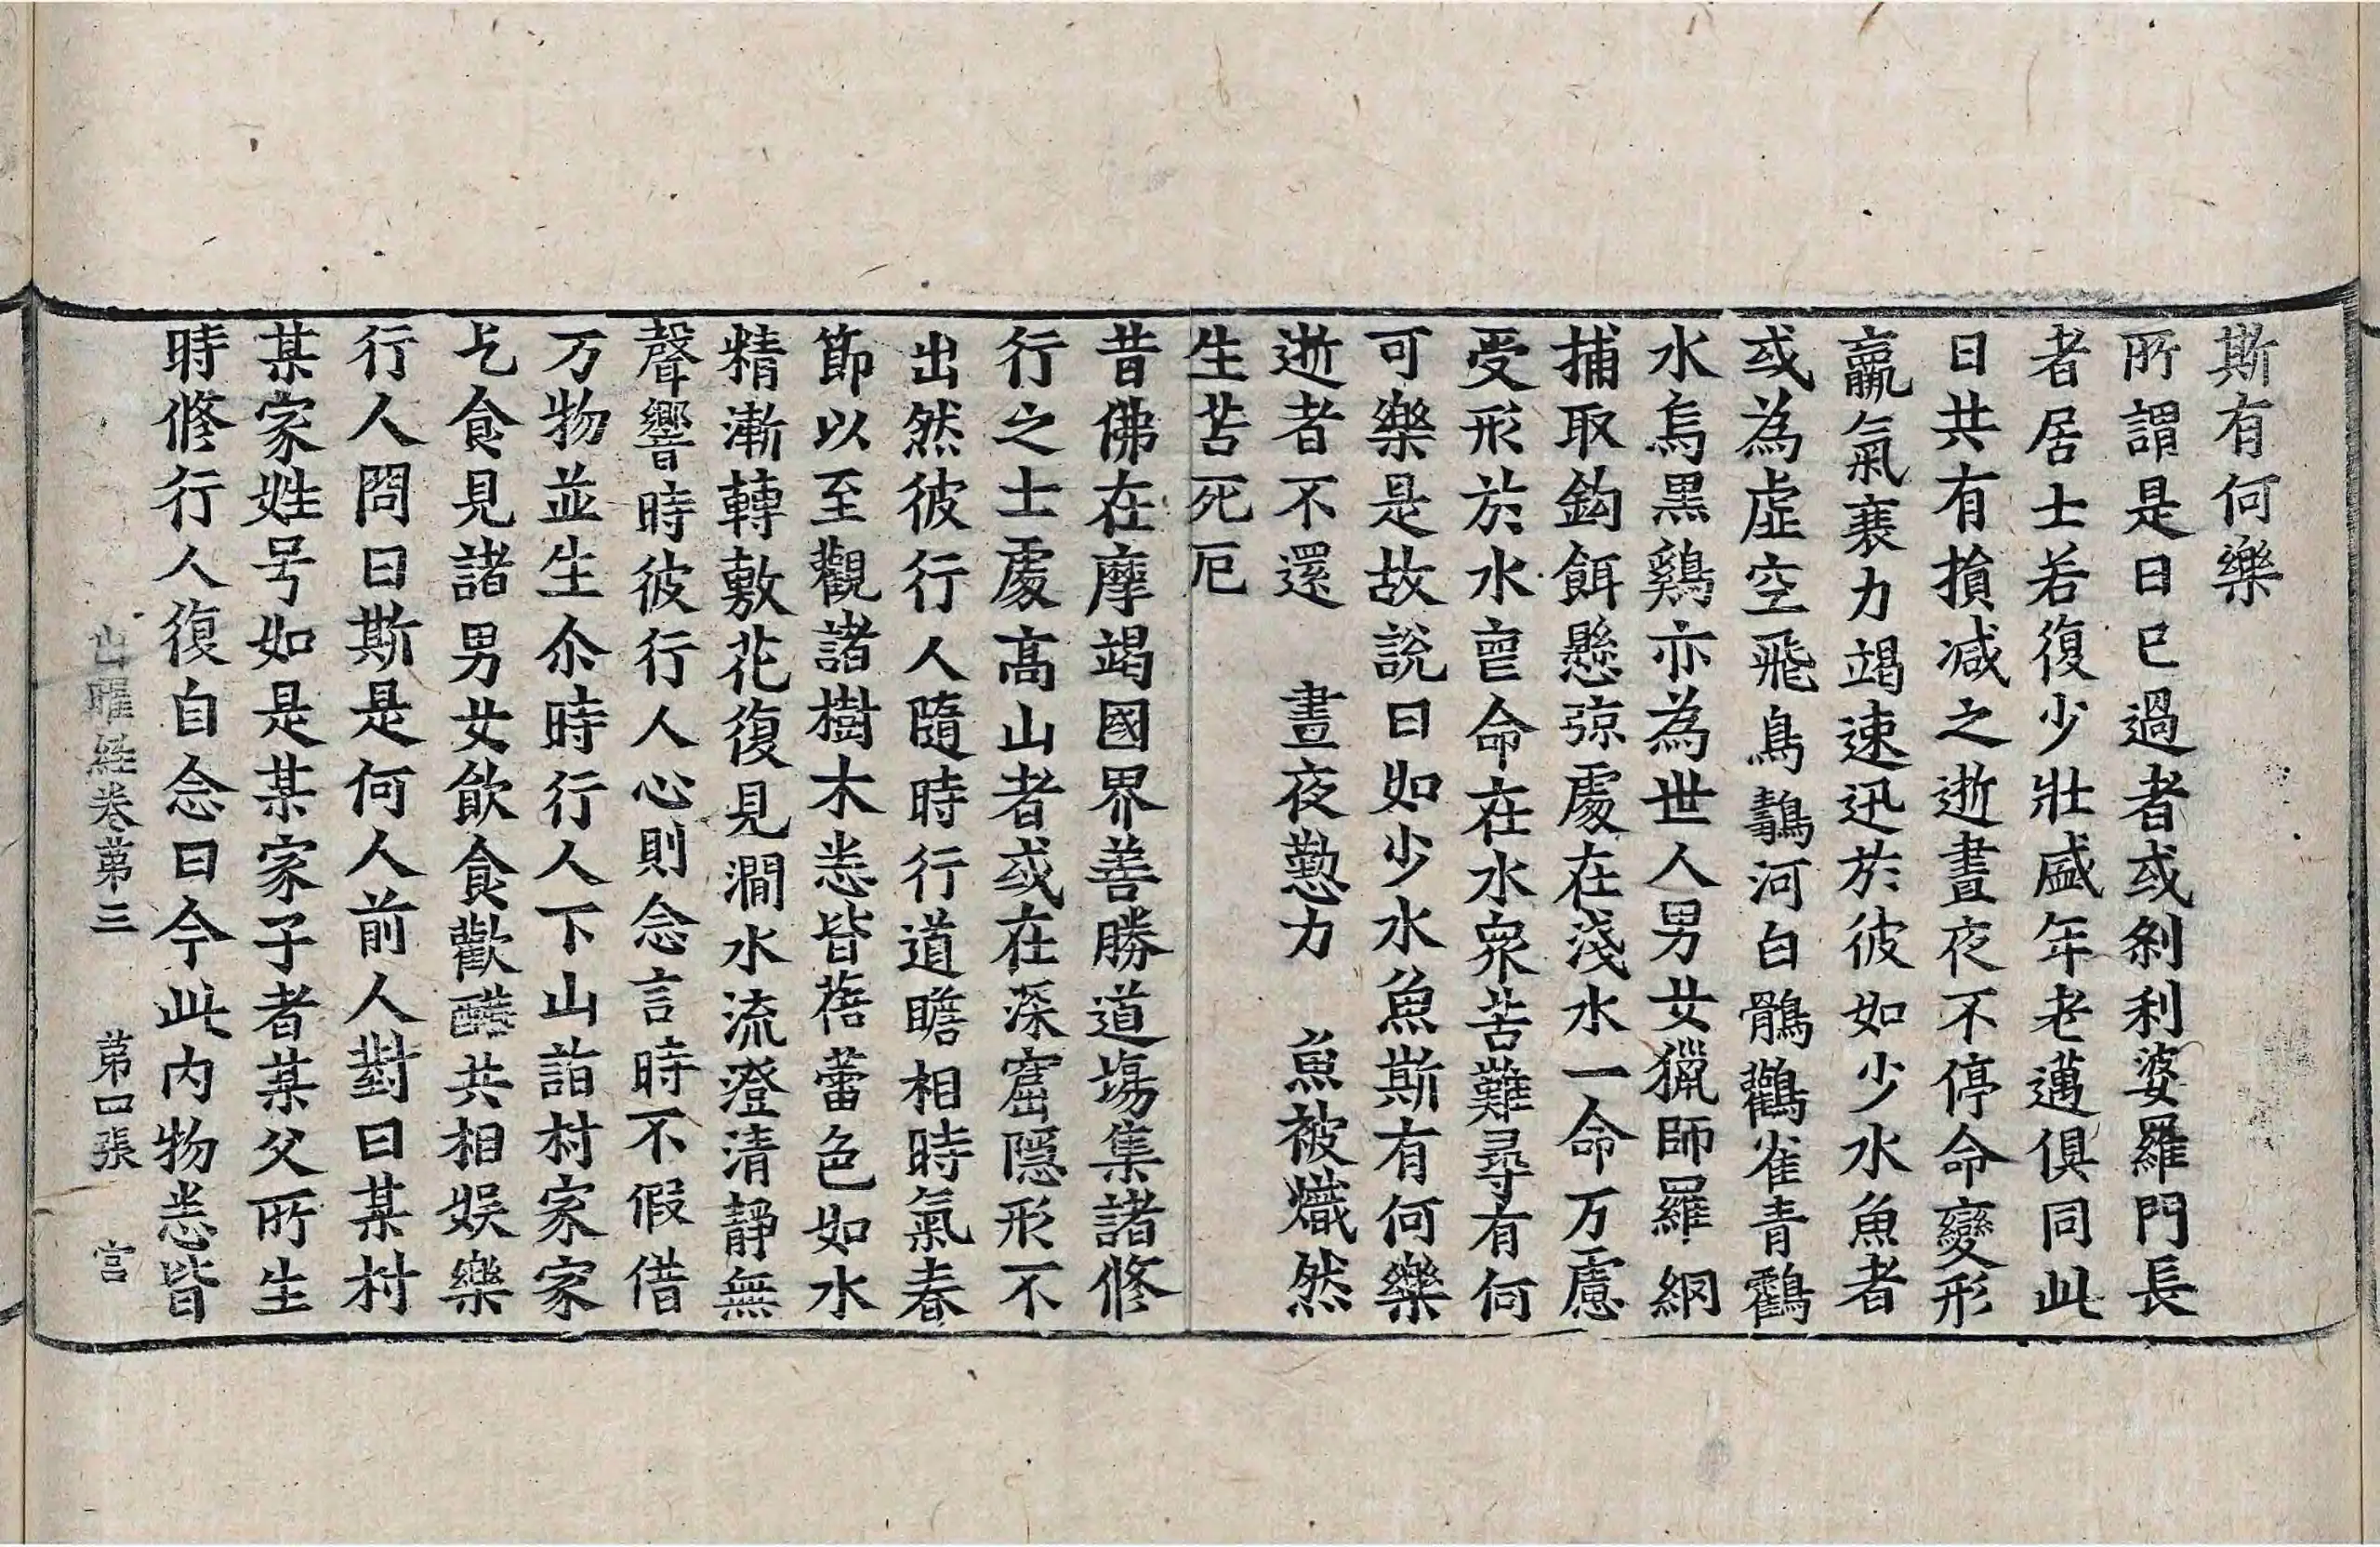 斯有何樂
所謂是日已過者或刹利婆羅門長
者居士若復少壯盛年老邁俱同此
日共有損减之逝晝夜不停命變形
羸氣衰力竭速迅於彼如少水魚者
或為虛空飛鳥鷧河白鶻鸛雀青鸖
水烏黑鷄亦為世人男女獵師羅網
捕取鈎餌懸弶處在淺水一命万慮
受形於水亶命在水衆苦難尋有何
可樂是故說曰如少水魚斯有何樂
逝者不還　晝夜懃力　魚被熾然
生苦死厄
昔佛在摩竭國界善勝道場集諸修
行之士處高山者或在深窟隱形不
出然彼行人隨時行道瞻相時氣春
節以至觀諸樹木悉皆蓓蕾色如水
精漸轉敷花復見澗水流澄清靜無
聲響時彼行人心則念言時不假借
万物並生尒時行人下山詣村家家
乞食見諸男女飲食歡醼共相娛樂
行人問曰斯是何人前人對曰某村
某家姓号如是某家子者某父所生
時修行人復自念曰今此内物悉皆
出曜経卷苐三　苐四張　宫